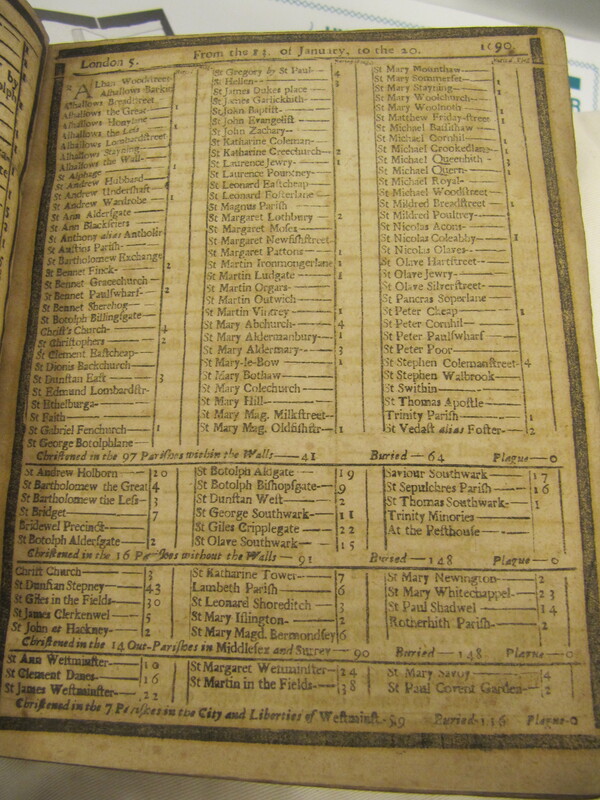 London 5. From the 13. of January, to the 20. 1690
St Alban Woodstreet
Alhallows Barkin
Alhallows Breadstreet
Alhallows the Great 1
Alhallows Honylane
Alhallows the Leſs 1
Alhallows Lombardſtreet
Alhallows Stayning
Alhallows the Wall
St Alphage 1
St Andrew Hubbard
St Andrew Underſhaft
St Andrew Wardrobe 1
St Ann Alderſgate
St Ann Blackfriers
St Anthony alias Antholin
St Auſtins Pariſh
St Bartholomew Exchange
St Bennet Finck 2
St Bennet Gracechurch
St Bennet Paulſwharf 2
St Bennet Sherehog
St Botolph Billingſgate
Chriſt's Church 4
St Chriſtophers 2
St Clement Eaſtcheap
St Dionis Backchurch
St Dunſtan Eaſt 3
St Edmund Lombardſtr
St Ethelburga
St Faith
St Gabriel Fenchurch 1
St George Botolphlane
St Gregory by St Paul 4
St Hellen
St James Dukes place
St James Garlickhith
St John Baptiſt
St John Evangeliſt
St John Zachary
St Katharine Coleman
St Katharine Creechurch 2
St Laurence Jewry 1
St Laurence Pountney
St Leonard Eaſtcheap
St Leonard Foſterlane
St Magnus Pariſh
St Margaret Lothbury 2
St Margaret Moſes
St Margaret Newfiſhſtreet
St Margaret Pattons 1
St Martin Ironmongerlane 1
St Martin Ludgate 1
St Martin Orgars
St Martin Outwich
St Martin Vintrey 1
St Mary Abchurch 4
St Mary Aldermanbury 1
St Mary Aldermary 3
St Mary-le-Bow 1
St Mary Bothaw
St Mary Colechurch
St Mary Hill
St Mary Mag. Milkſtreet
St Mary Mag. Oldfiſhſtr 1
St Mary Mounthaw
St Mary Sommerſet
St Mary Stayning 1
St Mary Woolchurch
St Mary Woolnoth
St Matthew Friday-ſtreet 1
St Michael Baſſiſhaw
St Michael Cornhil
St Michael Crookedlane
St Michael Queenhith 3
St Michael Quern 1
St Michael Royal
St Michael Woodſtreet
St Mildred Breadſtreet 1
St Mildred Poultrey
St Nicolas Acons
St Nicolas Coleabby 1
St Nicolas Olaves
St Olave Hartſtreet
St Olave Jewry
St Olave Silverſtreet
St Pancras Soperlane
St Peter Cheap 1
St Peter Cornhil
St Peter Paulſwharf
St Peter Poor
St Stephen Colemanſtreet 4
St Stephen Walbrook
St Swithin
St Thomas Apoſtle
Trinity Pariſh 1
St Vedaſt alias Foſter 2
Chriſtened in the 97 Pariſhes within the Walls 41 Buried 64 Plague 0
St Andrew Holborn 20
St Bartholomew the Great 4
St Bartholomew the Leſs 3
St Bridget 7
Bridewel Precinct
St Botolph Alderſgate 2
St Botolph Aldgate 19
St Botolph Biſhopſgate 9
St Dunſtan Weſt 2
St George Southwark 11
St Giles Cripplegate 22
St Olave Southwark 15
Saviour Southwark 17
St Sepulchres Pariſh 16
St Thomas Southwark 1
Trinity Minories
At the Peſthouſe
Chriſtened in the 16 Pariſhes without the Walls 91 Buried 148 Plague 0
Chriſt Church 3
St Dunſtan Stepney 43
St Giles in the Fields 30
St James Clerkenwel 5
St John at Hackney 2
St Katharine Tower 7
Lambeth Pariſh 6
St Leonard Shoreditch 3
St Mary Iſlington 2
St Mary Magd. Bermondſey 6
St Mary Newington 2
St Mary Whitechappel 23
St Paul Shadwel 14
Rotherhith Pariſh 2
Chriſtened in the 14 Out-Pariſhes in Middleſex and Surrey 90 Buried 148 Plague 0
St Ann Weſtminſter 10
St Clement Danes 16
St James Weſtminſter 22
St Margaret Weſtminſter 24
St Martin in the Fields 38
St Mary Savoy 4
St Paul Covent Garden 2
Chriſtened in the 7 Pariſhes in the City and Liberties of Weſtminſt. 89 Buried 116 Plague 0